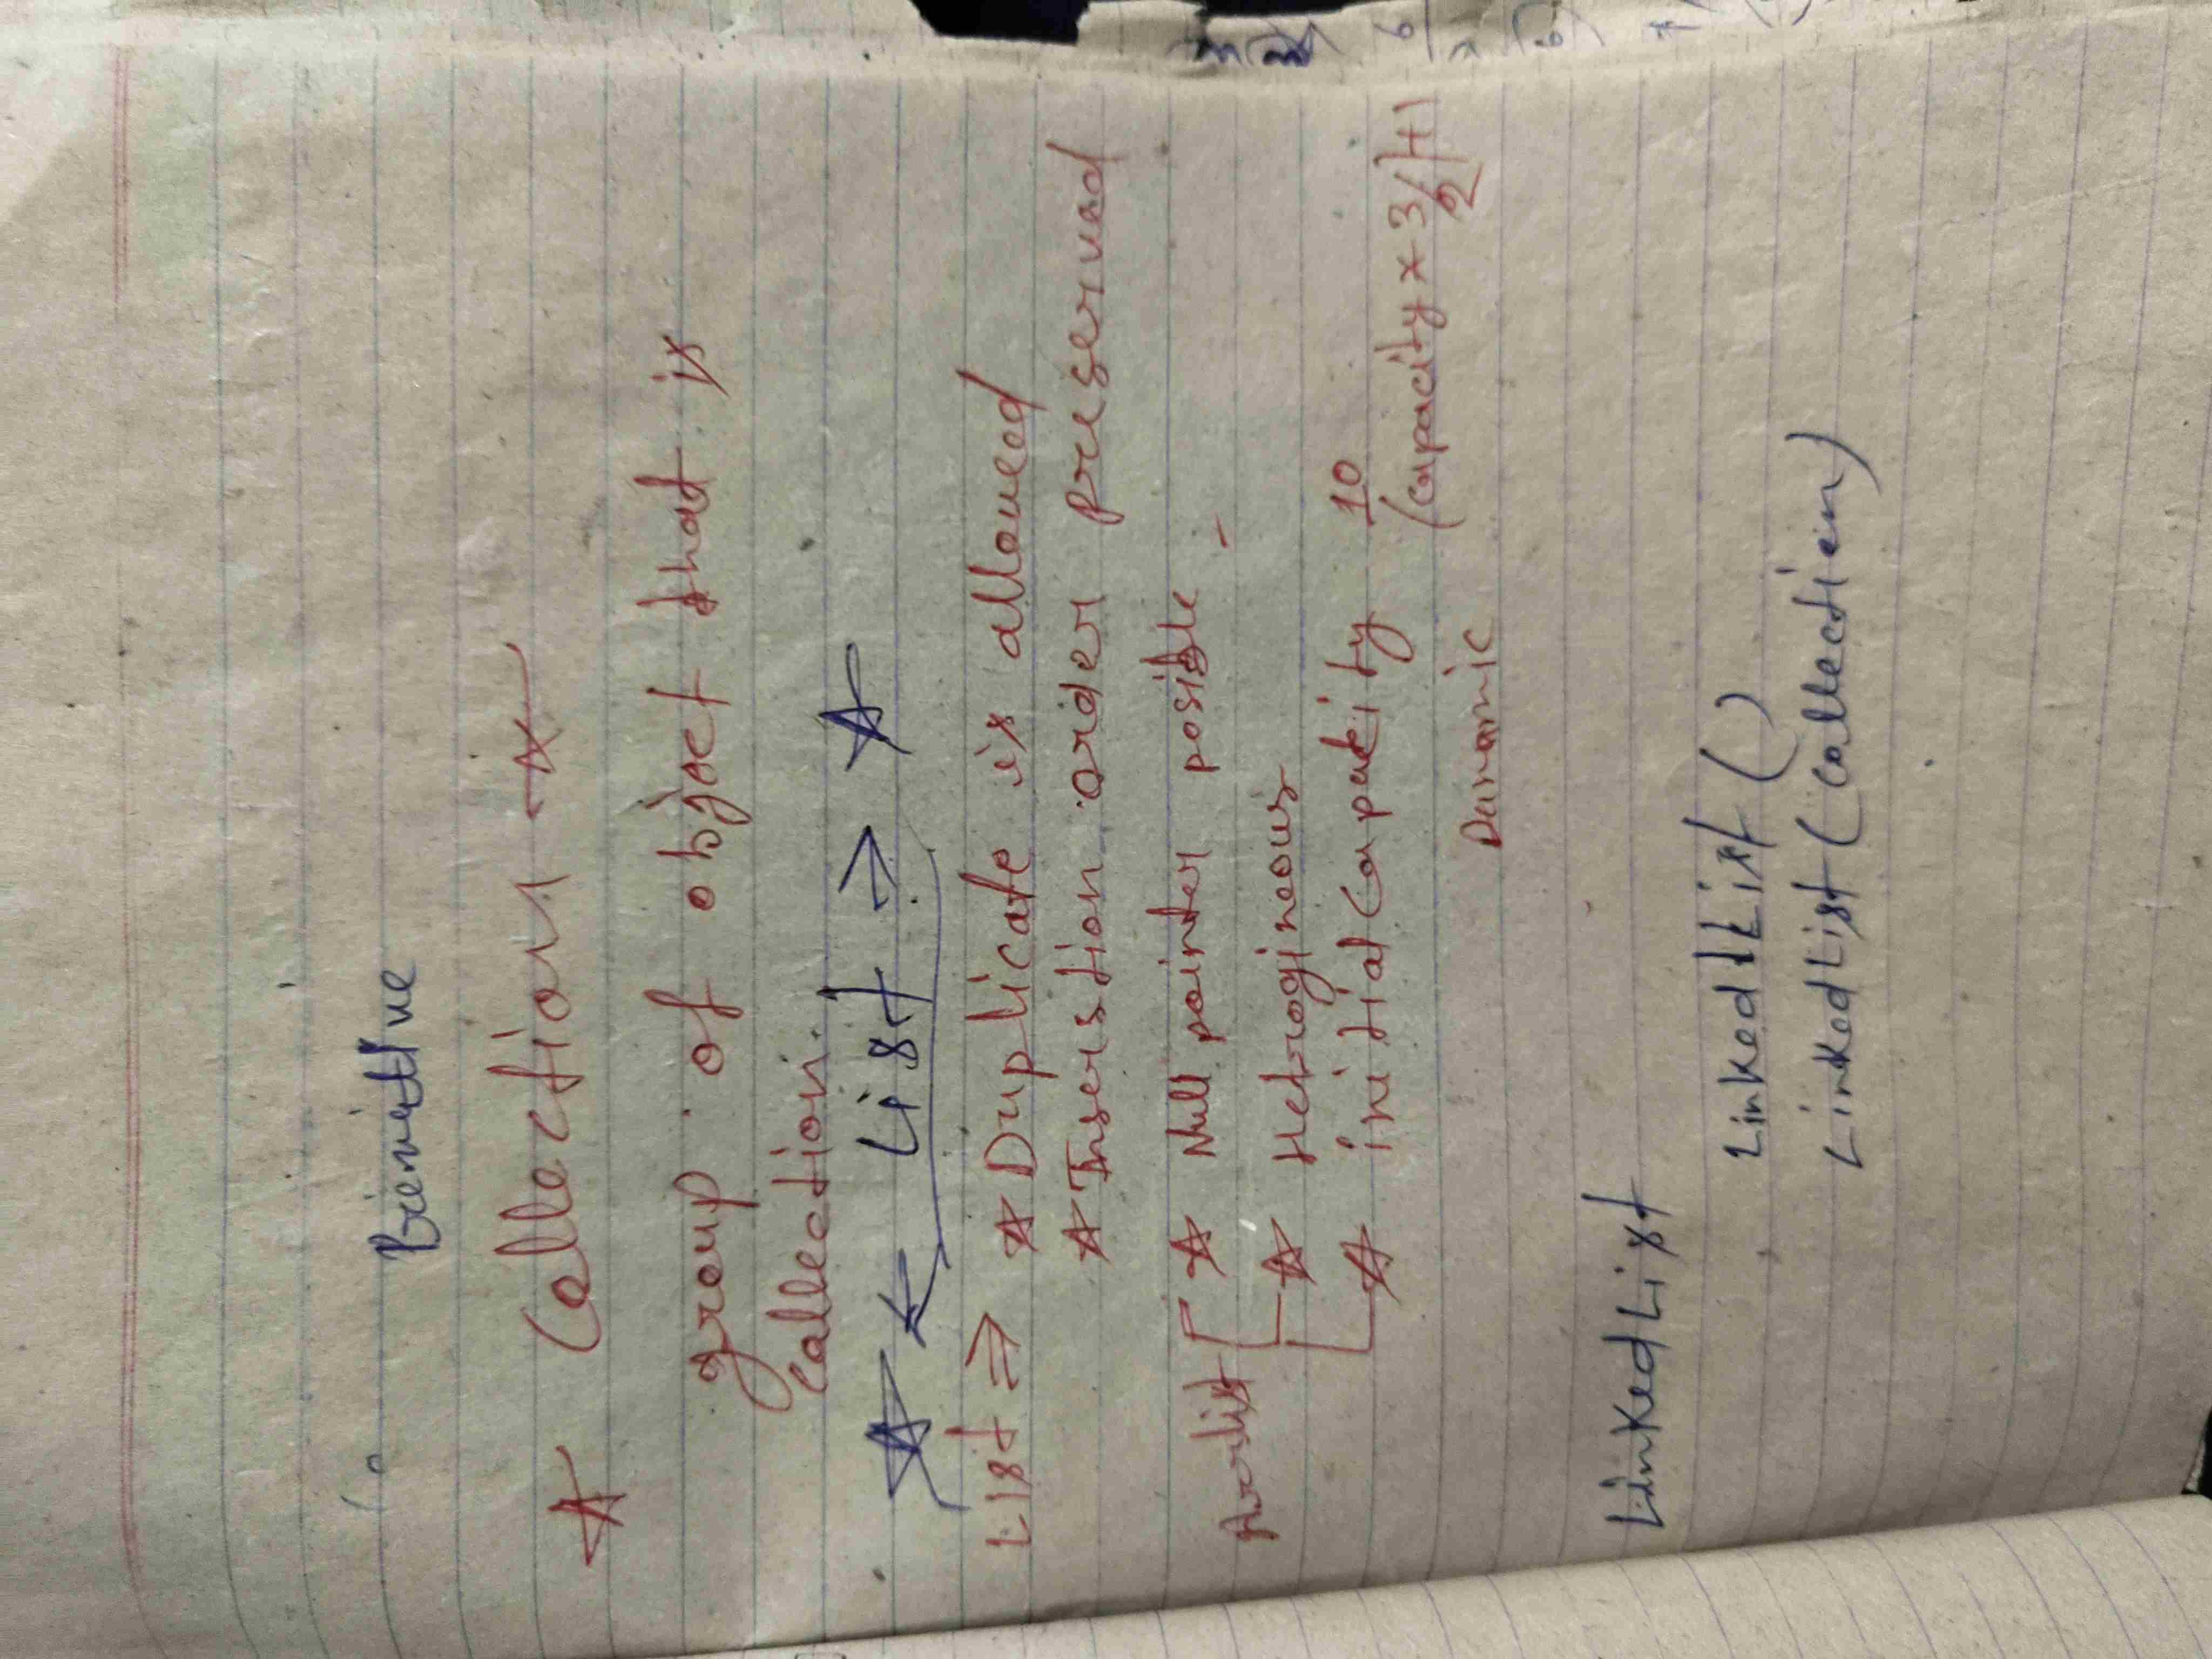 Primitive
☆ Collection ☆
group of object that is
collection.
☆ ← List ⇒ ☆
List ⇒ ☆ Duplicate is allowed
☆ Inserstion order preserved
☆ Null pointer posible
Arrlist
☆ Hetrogineous
☆ initial Capacity 10
(capacity x 3/2)+1
Dunamic
Linked List
Linked List ( )
Linked List ( Collection )